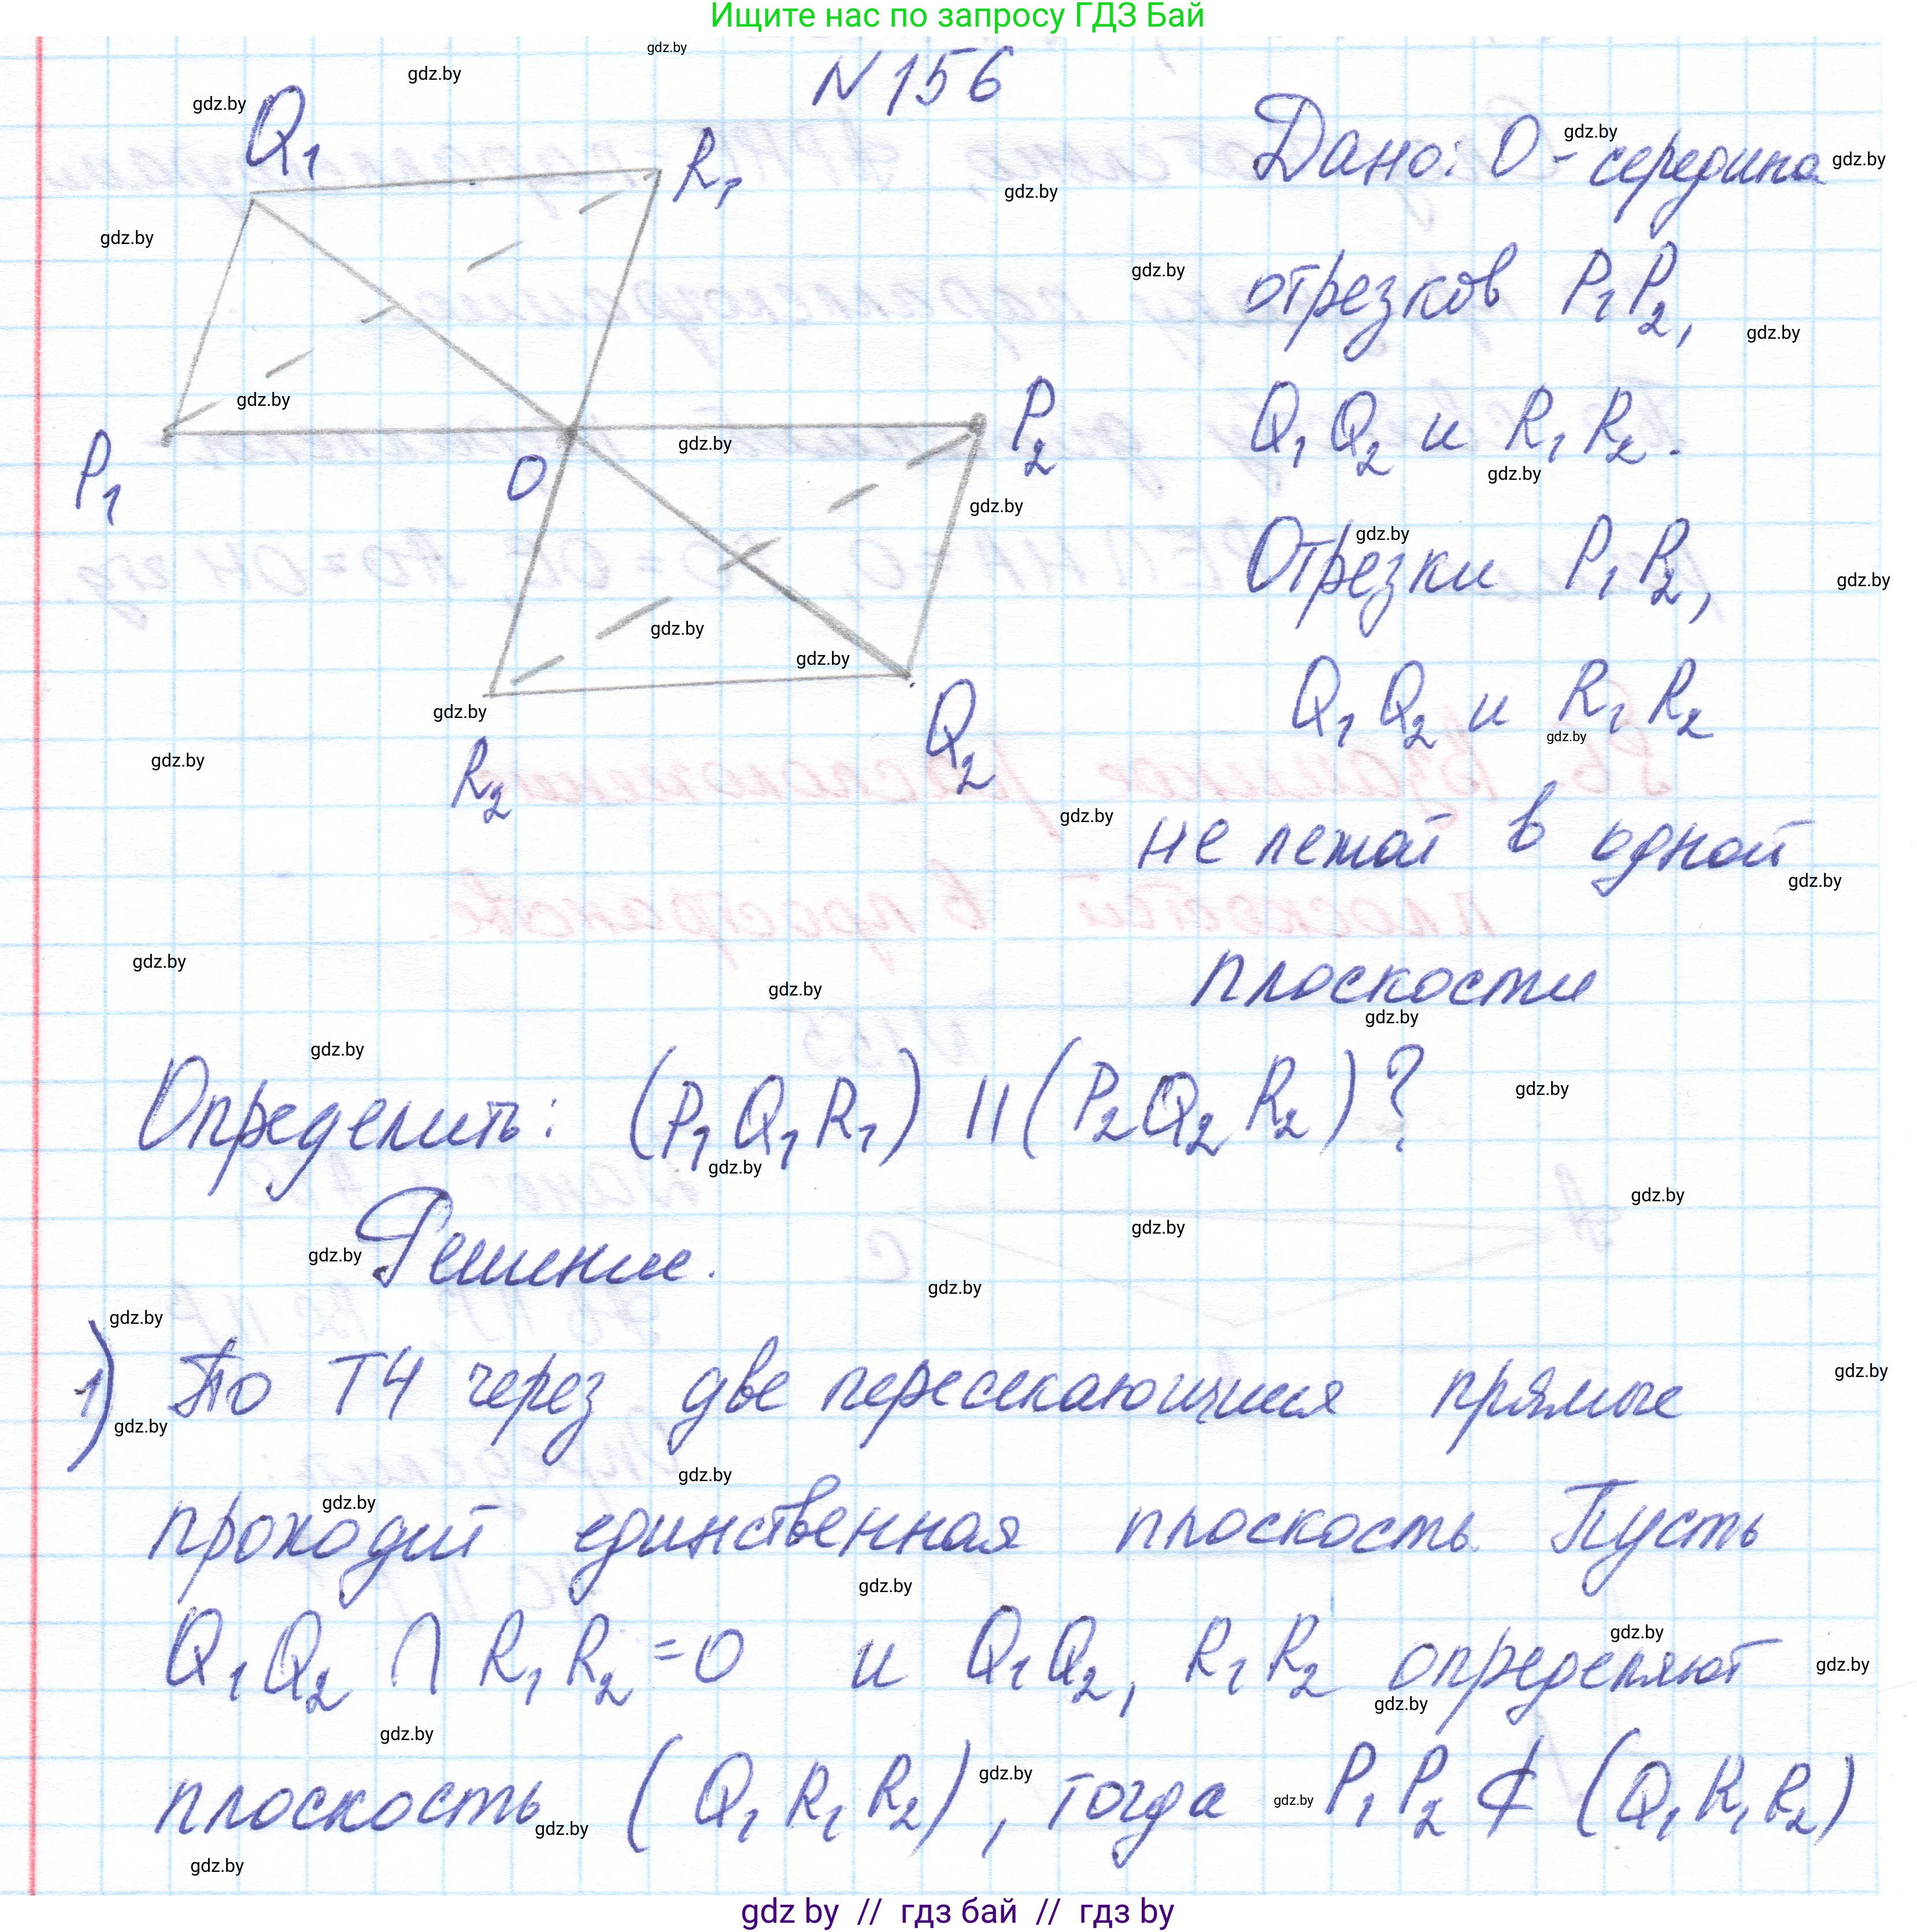 Ищите нас по запросу ГДЗ Бай
N 156
Q₁
R₁
P₁
O
P₂
R₂
Q₂
Дано: O - середина
отрезков P₁P₂,
Q₁Q₂ и R₁R₂.
Отрезки P₁P₂,
Q₁Q₂ и R₁R₂
не лежат в одной
плоскости
Определить: (P₁Q₁R₁) || (P₂Q₂R₂)?
Решение.
1) По Т4 через две пересекающиеся прямые
проходит единственная плоскость. Пусть
Q₁Q₂ ∩ R₁R₂ = O и Q₁Q₂, R₁R₂ определяют
плоскость (Q₁R₁R₂), тогда P₁P₂ ⊄ (Q₁R₁R₂)
gdz by // гдз бай // гдз by